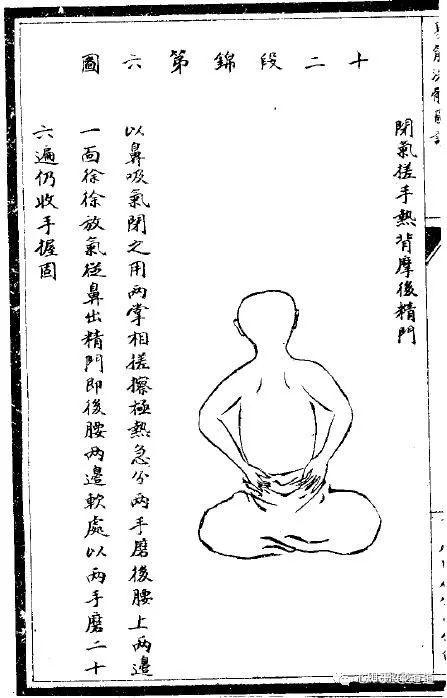 十二段錦第六圖
閉氣搓手熱背摩後精門
以鼻吸氣閉之用兩掌相搓擦極熱急分兩手磨後腰上兩邊
一面徐徐放氣從鼻出精門即後腰兩邊軟處以兩手磨二十
六遍仍收手握固